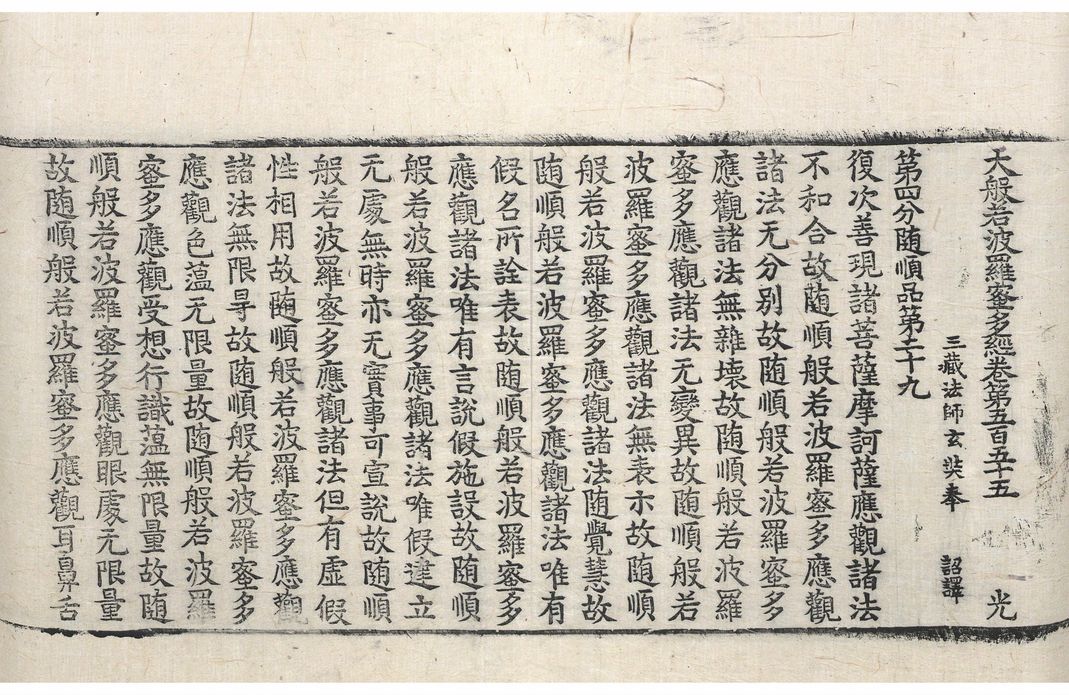 大般若波羅蜜多經卷第五百五十五 光
三藏法師玄奘奉 詔譯
第四分随順品第二十九
復次善現諸菩薩摩訶薩應觀諸法
不和合故随順般若波羅蜜多應觀
諸法无分别故随順般若波羅蜜多
應觀諸法無雜壊故随順般若波羅
蜜多應觀諸法无變異故随順般若
波羅蜜多應觀諸法無表示故随順
般若波羅蜜多應觀諸法随覺慧故
随順般若波羅蜜多應觀諸法唯有
假名所詮表故随順般若波羅蜜多
應觀諸法唯有言說假施設故随順
般若波羅蜜多應觀諸法唯假建立
无處無時亦无實事可宣說故随順
般若波羅蜜多應觀諸法但有虛假
性相用故随順般若波羅蜜多應觀
諸法無限㝵故随順般若波羅蜜多
應觀色薀无限量故随順般若波羅
蜜多應觀受想行識薀無限量故随
順般若波羅蜜多應觀眼處无限量
故随順般若波羅蜜多應觀耳鼻舌